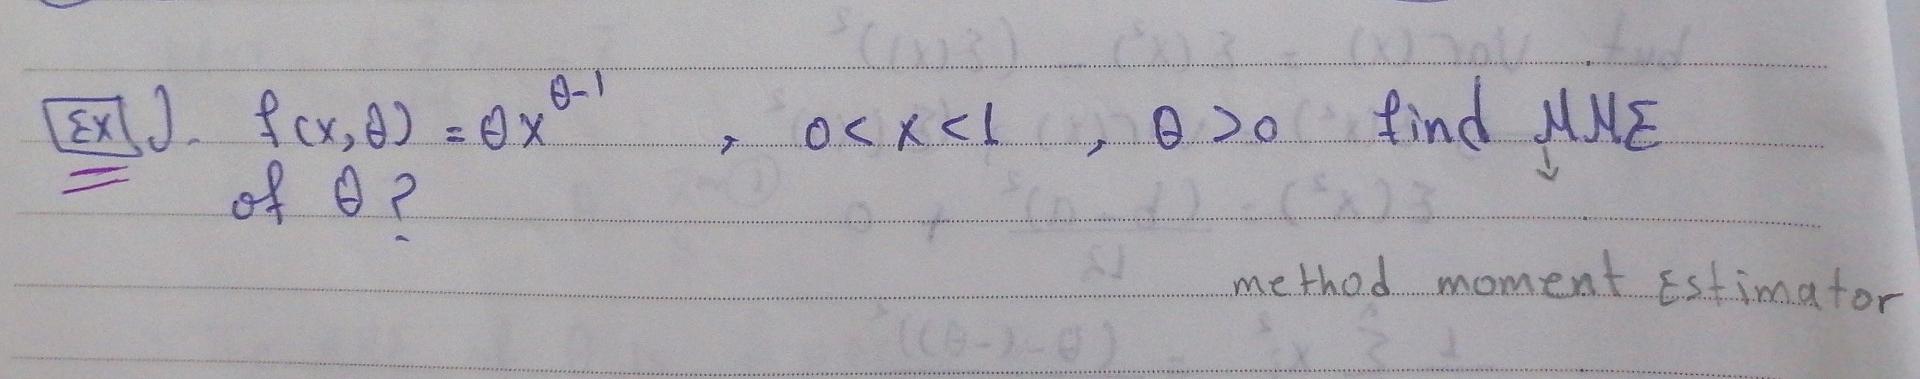 Ex). f(x,θ) = θx^(θ-1) , 0<x<1 , θ>0 find MME
of θ?
↓
method moment Estimator